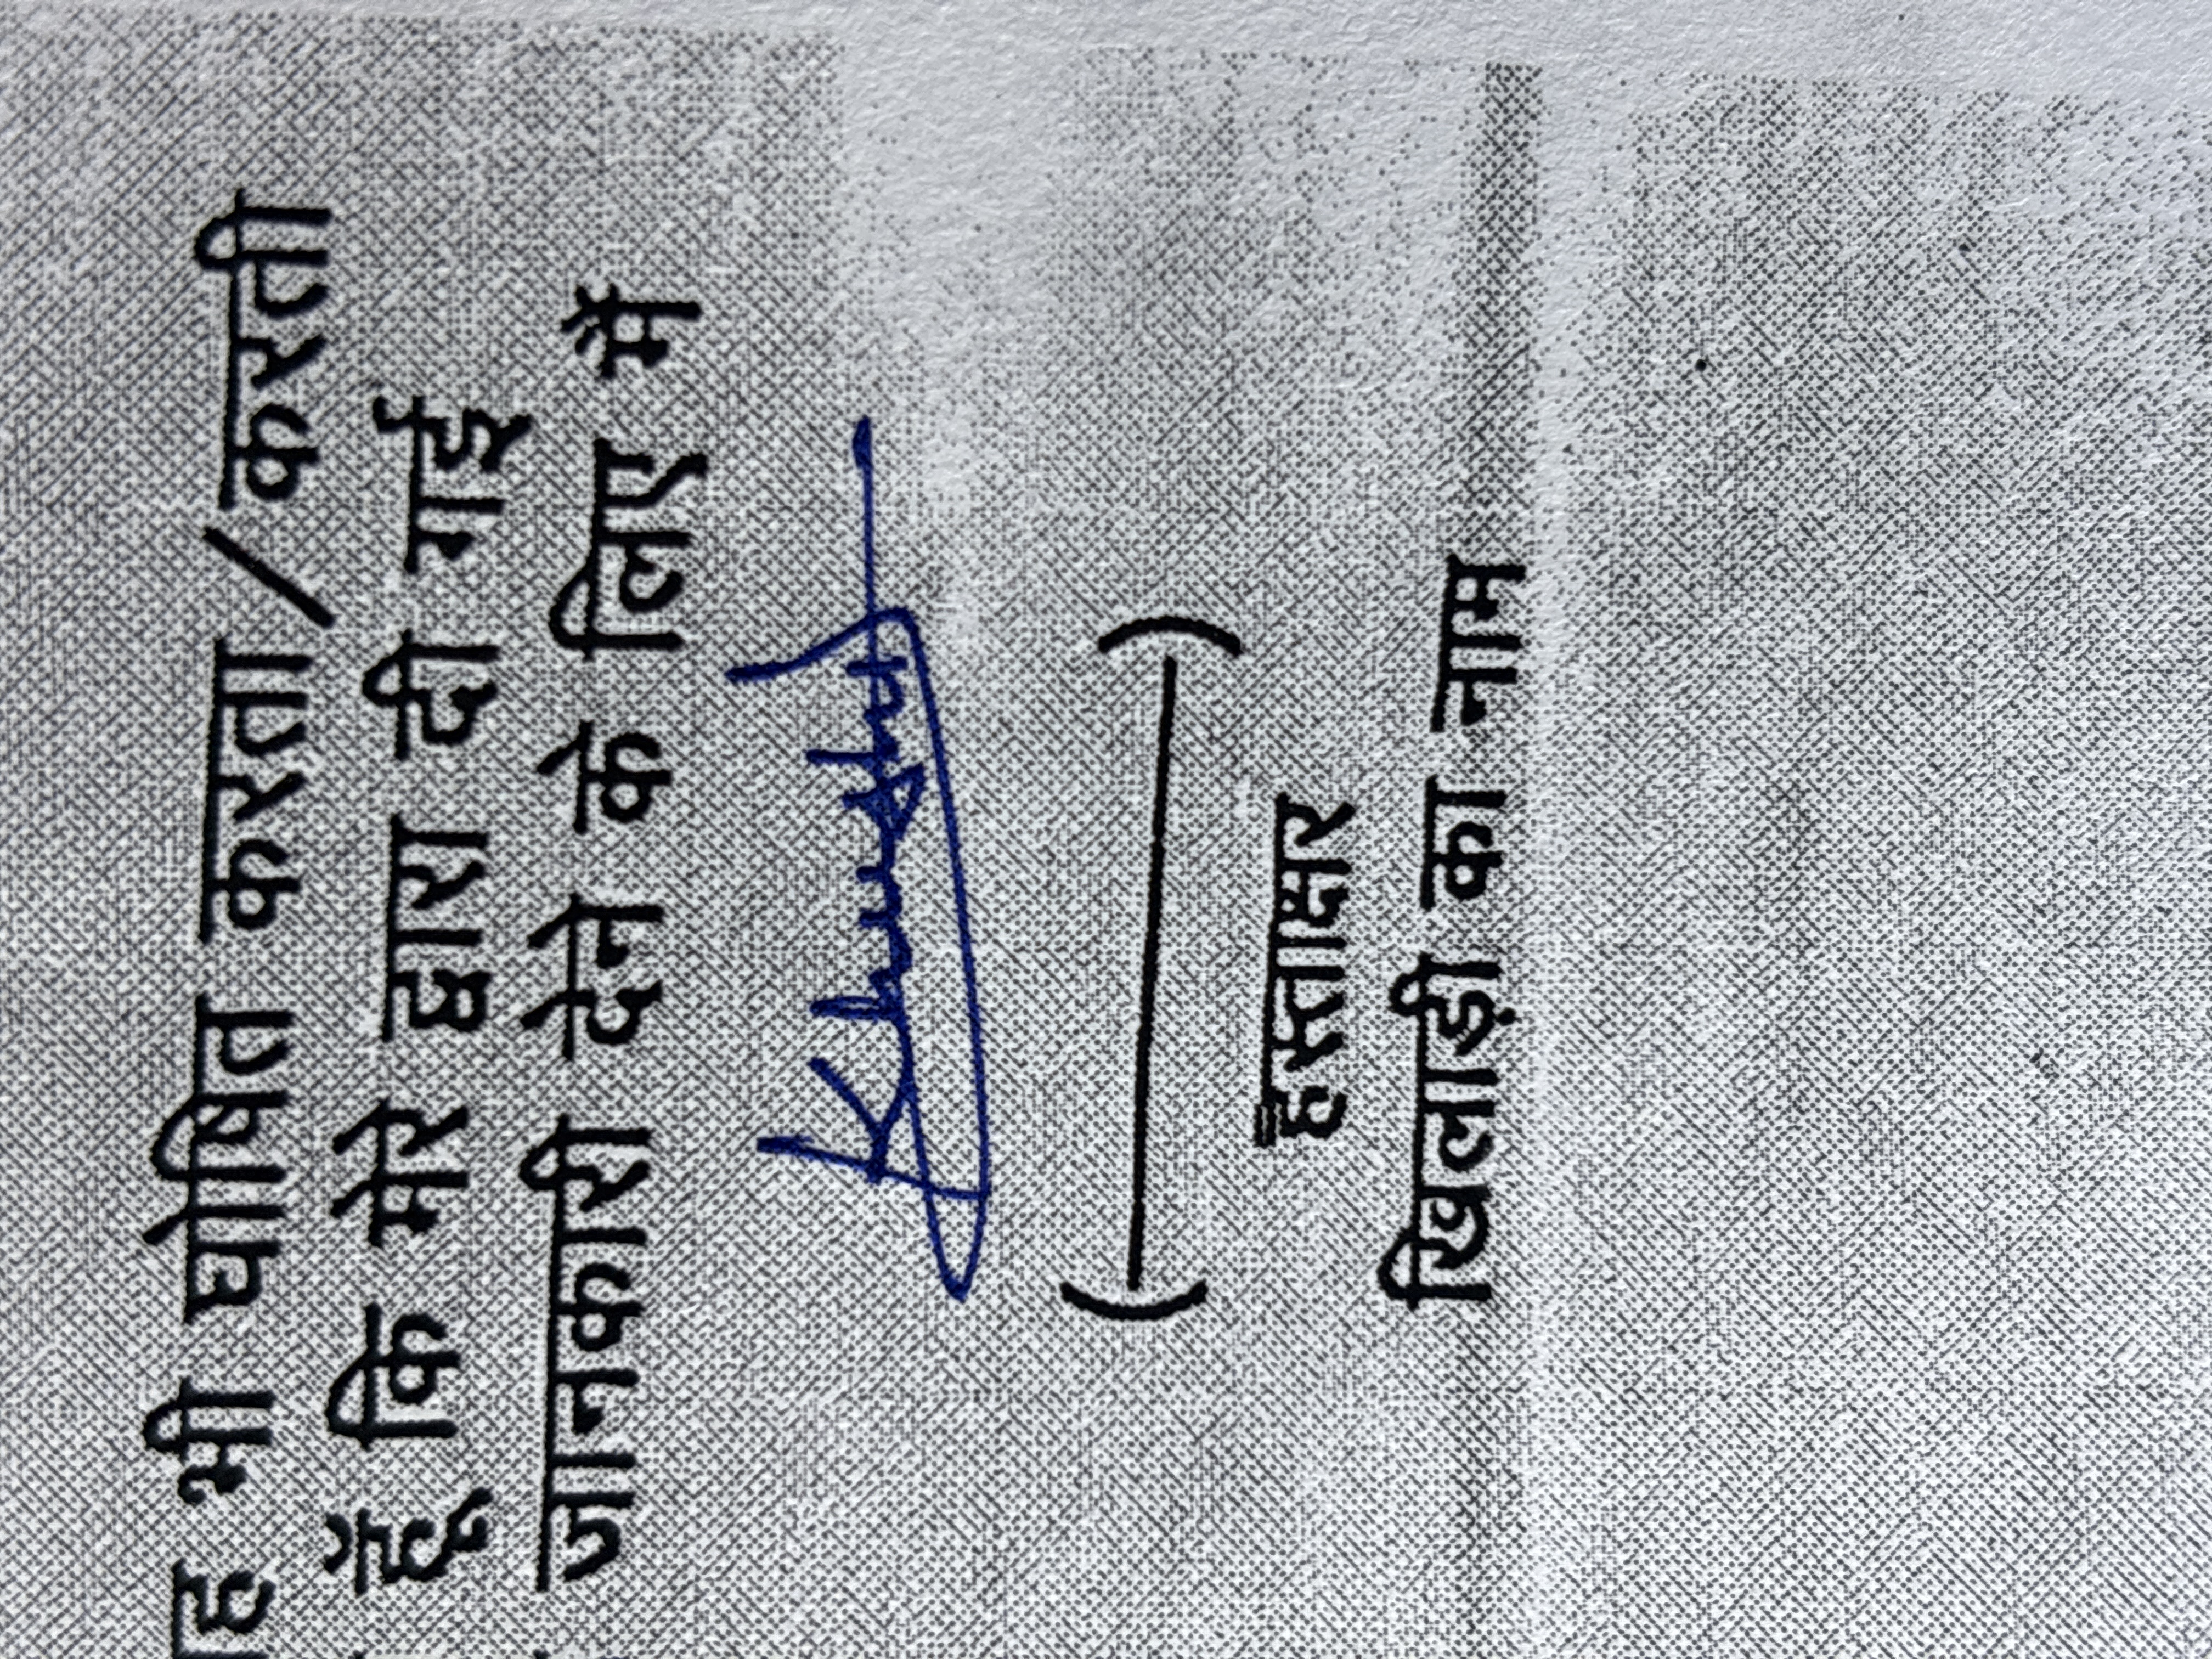 यह भी घोषित करता / करती
हूँ कि मेरे द्वारा दी गई
जानकारी देने के लिए मैं
Khushi
(—)
हस्ताक्षर
खिलाड़ी का नाम